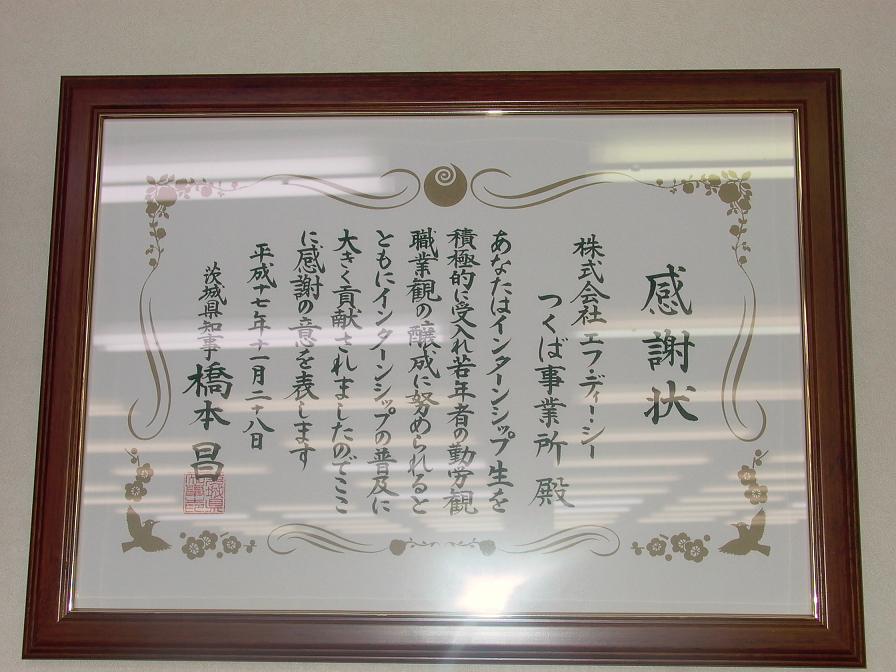 感謝状
株式会社エフ・ディー・シー
つくば事業所 殿
あなたはインターンシップ生を
積極的に受入れ若年者の勤労観
職業観の醸成に努められると
ともにインターンシップの普及に
大きく貢献されましたのでここ
に感謝の意を表します
平成十七年十一月二十八日
茨城県知事 橋本 昌